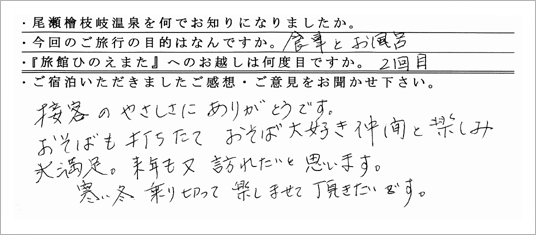 ・尾瀬檜枝岐温泉を何でお知りになりましたか。
・今回のご旅行の目的はなんですか。食事とお風呂
・『旅館ひのえまた』へのお越しは何度目ですか。2回目
・ご宿泊いただきましたご感想・ご意見をお聞かせ下さい。
接客のやさしさにありがとうです。
おそばも打ちたておそば大好き仲間と楽しみ
大満足。来年も又訪れたいと思います。
寒い冬乗り切って楽しませて頂きたいです。